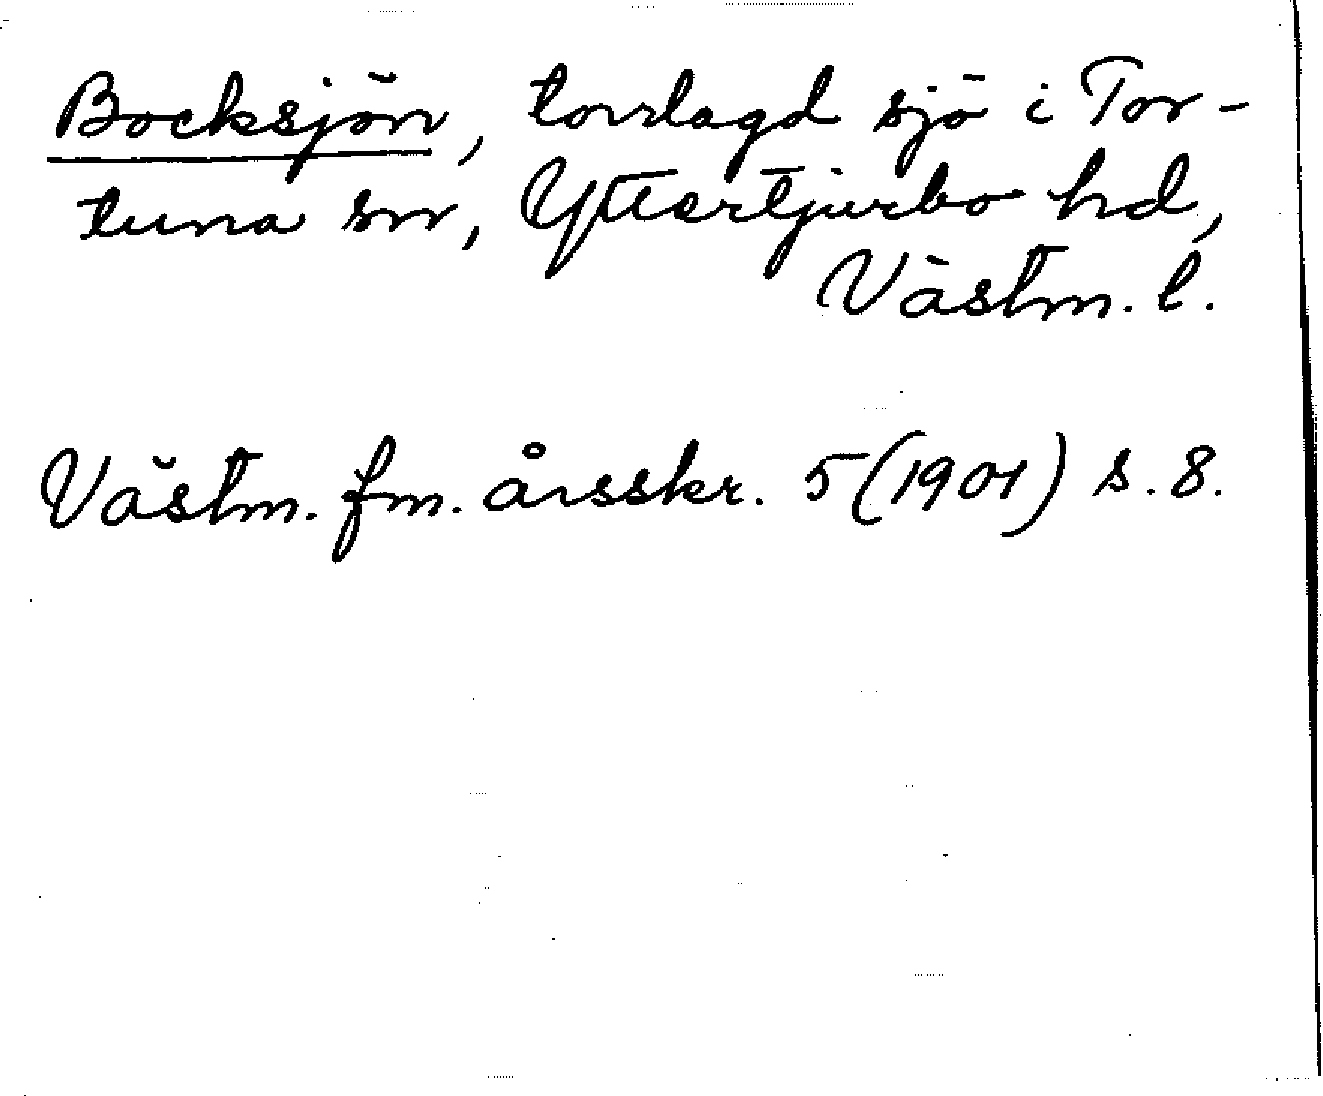 Bocksjön, torrlagd sjö i Tor-
tuna sn, Yttertjurbo hd,
Västm. l.
Västm. fm. årsskr. 5 (1901) s. 8.